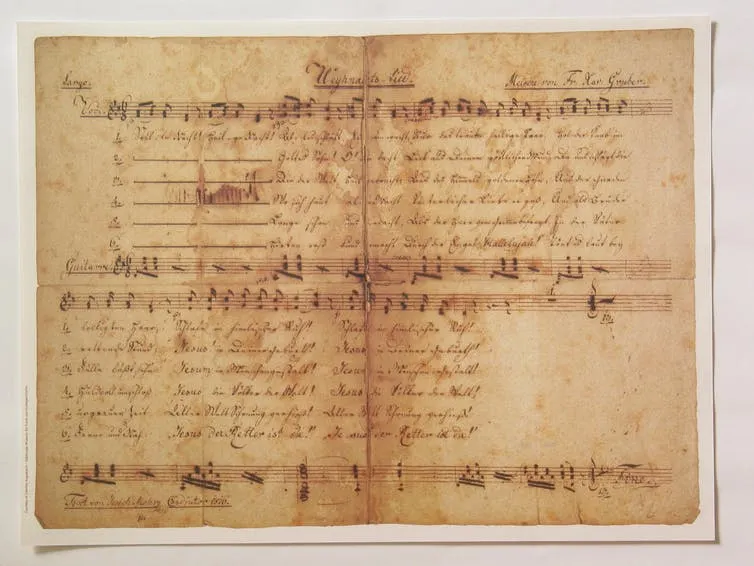 Largo. Weyhnachts-Lied. Melodie von Fr. Xav. Gruber.
Voce
1. Stille Nacht! Heilige Nacht! Alles schläft Nur das traute heilige Paar. Holder Knab im
2. Gottes Sohn! O! wie lacht Lieb aus Deinem göttlichen Mund, Da schlägt uns die
3. Die der Welt Heil gebracht, Aus des Himmels goldenen Höhn, Aus der Gnaden
4. Wo sich heut alle Macht Väterlicher Liebe ergoß, Und als Bruder
5. Lange schon uns bedacht, Als der Herr vom Grimme befreyt In der Väter
6. Hirten erst kundgemacht Durch der Engel Hallelujah! Tönt es laut bey
Guitarre.
1. lockigten Haar; Schlafe in himlischer Ruh! Schlafe in himlischer Ruh!
2. rettende Stund. Jesus! in Deiner Geburth! Jesus in Deiner Geburth!
3. Fülle läßt sehn Jesum in Menschengestalt! Jesum in Menschengestalt!
4. Huldvoll umschloß Jesus die Völker der Welt! Jesus die Völker der Welt!
5. urgrauer Zeit Aller Welt Schonung verhieß! Aller Welt Schonung verhieß!
6. Ferne und Nah: Jesus der Retter ist da! Jesus der Retter ist da!
Fine.
Text von Joseph Mohr Coadjutor 1816.